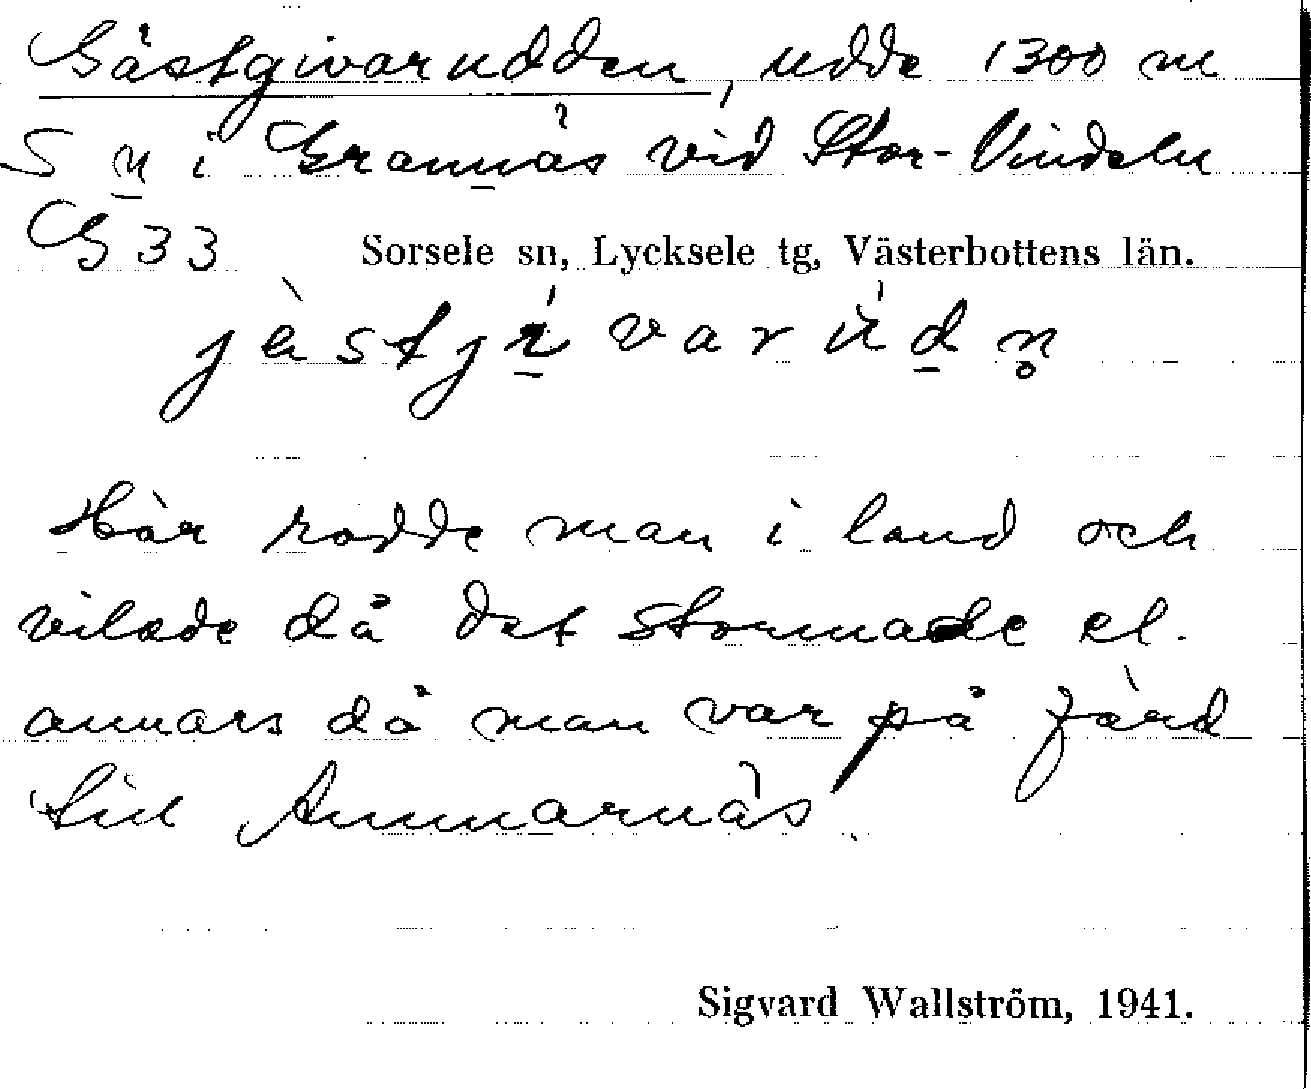 Gästgivarudden, udde 1300 m
S n i Grannäs vid Stor-Vindeln
G 33 Sorsele sn, Lycksele tg, Västerbottens län.
jàstjɪ́varúdn̥
Här rodde man i land och
vilade då det stormade el.
annars då man var på färd
till Ammarnäs.
Sigvard Wallström, 1941.